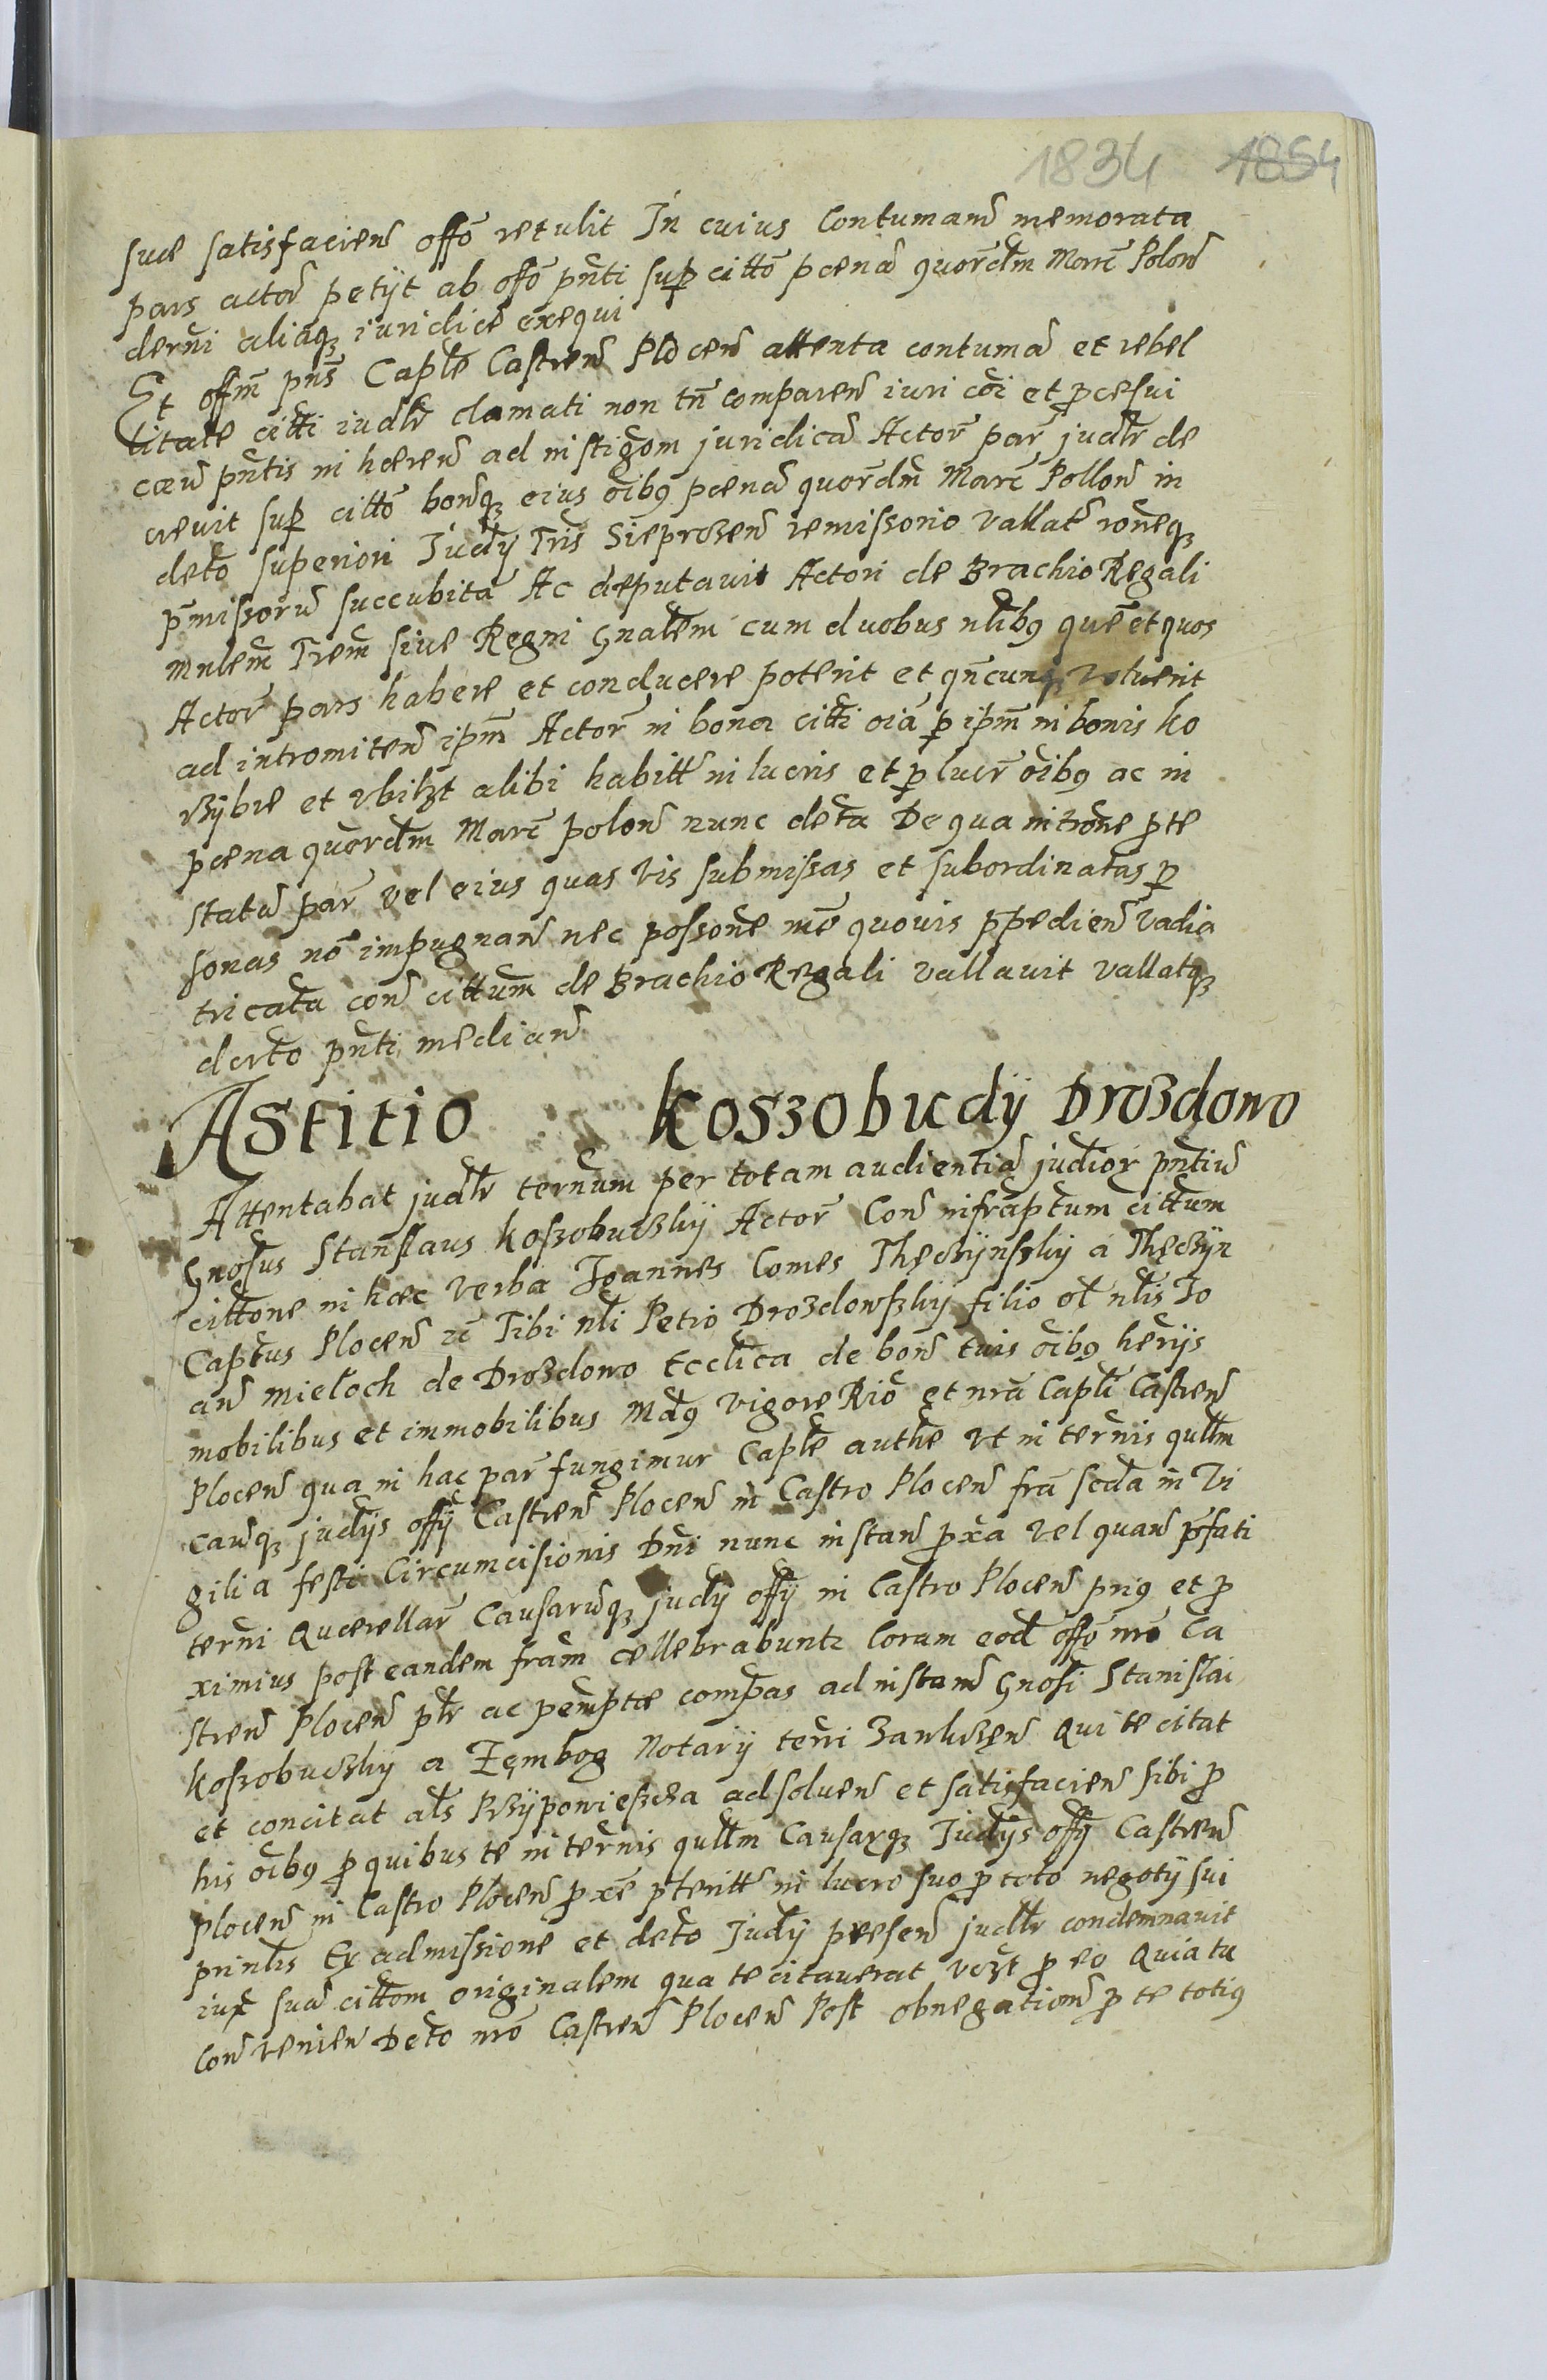 1834 1854
suæ satisfacien̄ offō retulit In cuius Contumam̄ memorata
pars actor̄ petijt ab offō pn̄ti sup̱ cittō pœnā quor̄dm̄ Marc̄ Polon̄
derni aliaqꝫ iuridicē exequi
Et offm̄ pn̄s Caplē Castren̄ Plocen̄ attenta contumā et rebel
litate citti iudłr clamati non tn̄ comparen̄ iuri cōi et ꝓcesui
cæū pn̄tis inhæren̄ ad instigōm juridicā Actor̄ par̄ judłr de
crevit sup̱ cittō bonqꝫ eius oībꝫ pœnā quor̄dm̄ Marc̄ Pollon̄ in
detō superiori Judÿ Trīs Sieprszen̄ remissorio Vallat̄ rōneqꝫ
p̄missorū succubitā Ac deputavit Actori de Brachio Regali
Mnlem̄ Trem̄ sive Regni Gnalem̄ cum duobus nlibꝫ quē et quos
Actor̄ pars habere et conducere poterit et qn̄cunqꝫ voluerit
ad intromiten̄ ipm̄ Actor̄ in bona citti oīa ꝑ ipm̄ in bonis ko
rzÿbie et vbilꝫt alibi habitt̄ in lucris et ꝓ lucr̄ oībꝫ ac in
pœna quor̄dm̄ Marc̄ polon̄ nunc detā De qua introne ꝑ te
statū par̄ vel eius quas vis submissas et subordinatas ꝑ
sonas nō impugnan̄ nec possone me quovis p̄pedien̄ vadia
tricatā con̄ cittum de Brachio Regali vallavit vallatqꝫ
dectō pn̄ti median̄
Astitio Koszobudÿ Drozdowo
Attentabat judłr ternum per totam audientiā judior̄ pn̄tiū
Gnosus Stanislaus Kossobudzkÿ Actor̄ Con̄ infraptum cittum
cittone in hæc verba Joannes Comes Thęczÿnskÿ a Thęczÿn
Captus Plocen̄ zc̄ Tibi nłi Petro Drozdowskÿ filio oł nłis Jo
an̄ Mieloch de Drozdowo Ecclica de bon̄ tuis oībꝫ herijs
mobilibus et immobilibus Mdꝫ vigore Riō et nrā Capłi Castren̄
Plocen̄ qua in hac par̄ fungimur Caplē authē Vt in ternis qułłm
cauqꝫ judÿs offÿ Castren̄ Plocen̄ in Castro Plocen̄ frā scdā in Vi
gilia festi Circumcisionis Dni nunc instan̄ ꝓxā Vel quan̄ p̄fati
terni Querellar̄ Causarūqꝫ judÿ offÿ in Castro Plocen̄ priꝫ et ꝓ
ximius post eandem fram̄ cellebrabuntr Coram eod offō nrō Ca
stren̄ Plocen̄ płr ac pemptæ comp̄as ad instan̄ Gnosi Stanislai
Kossobudzkÿ a Zęmbog Notarÿ terri Zawkrzen̄ Qui te citat
et concitat ałs Przÿpowieszcza ad soluen̄ et satisfacien̄ sibi ꝓ
his oībꝫ ꝓ quibus te in ternis qułłm Causarqꝫ Judÿs offÿ Castren̄
Plocen̄ in Castro Plocen̄ ꝓxē p̄teritt̄ in lucro suo ꝓ toto negotÿ sui
prinłis Ex admissione et detō Judÿ presen̄ judłr condemnavit
iuxt suā cittom originalem qua te citaverat vczt ꝓ eo Quia tu
Con̄venien̄ Detō nrō Castren̄ Plocen̄ Post obnegationē ꝑ te totiꝫ